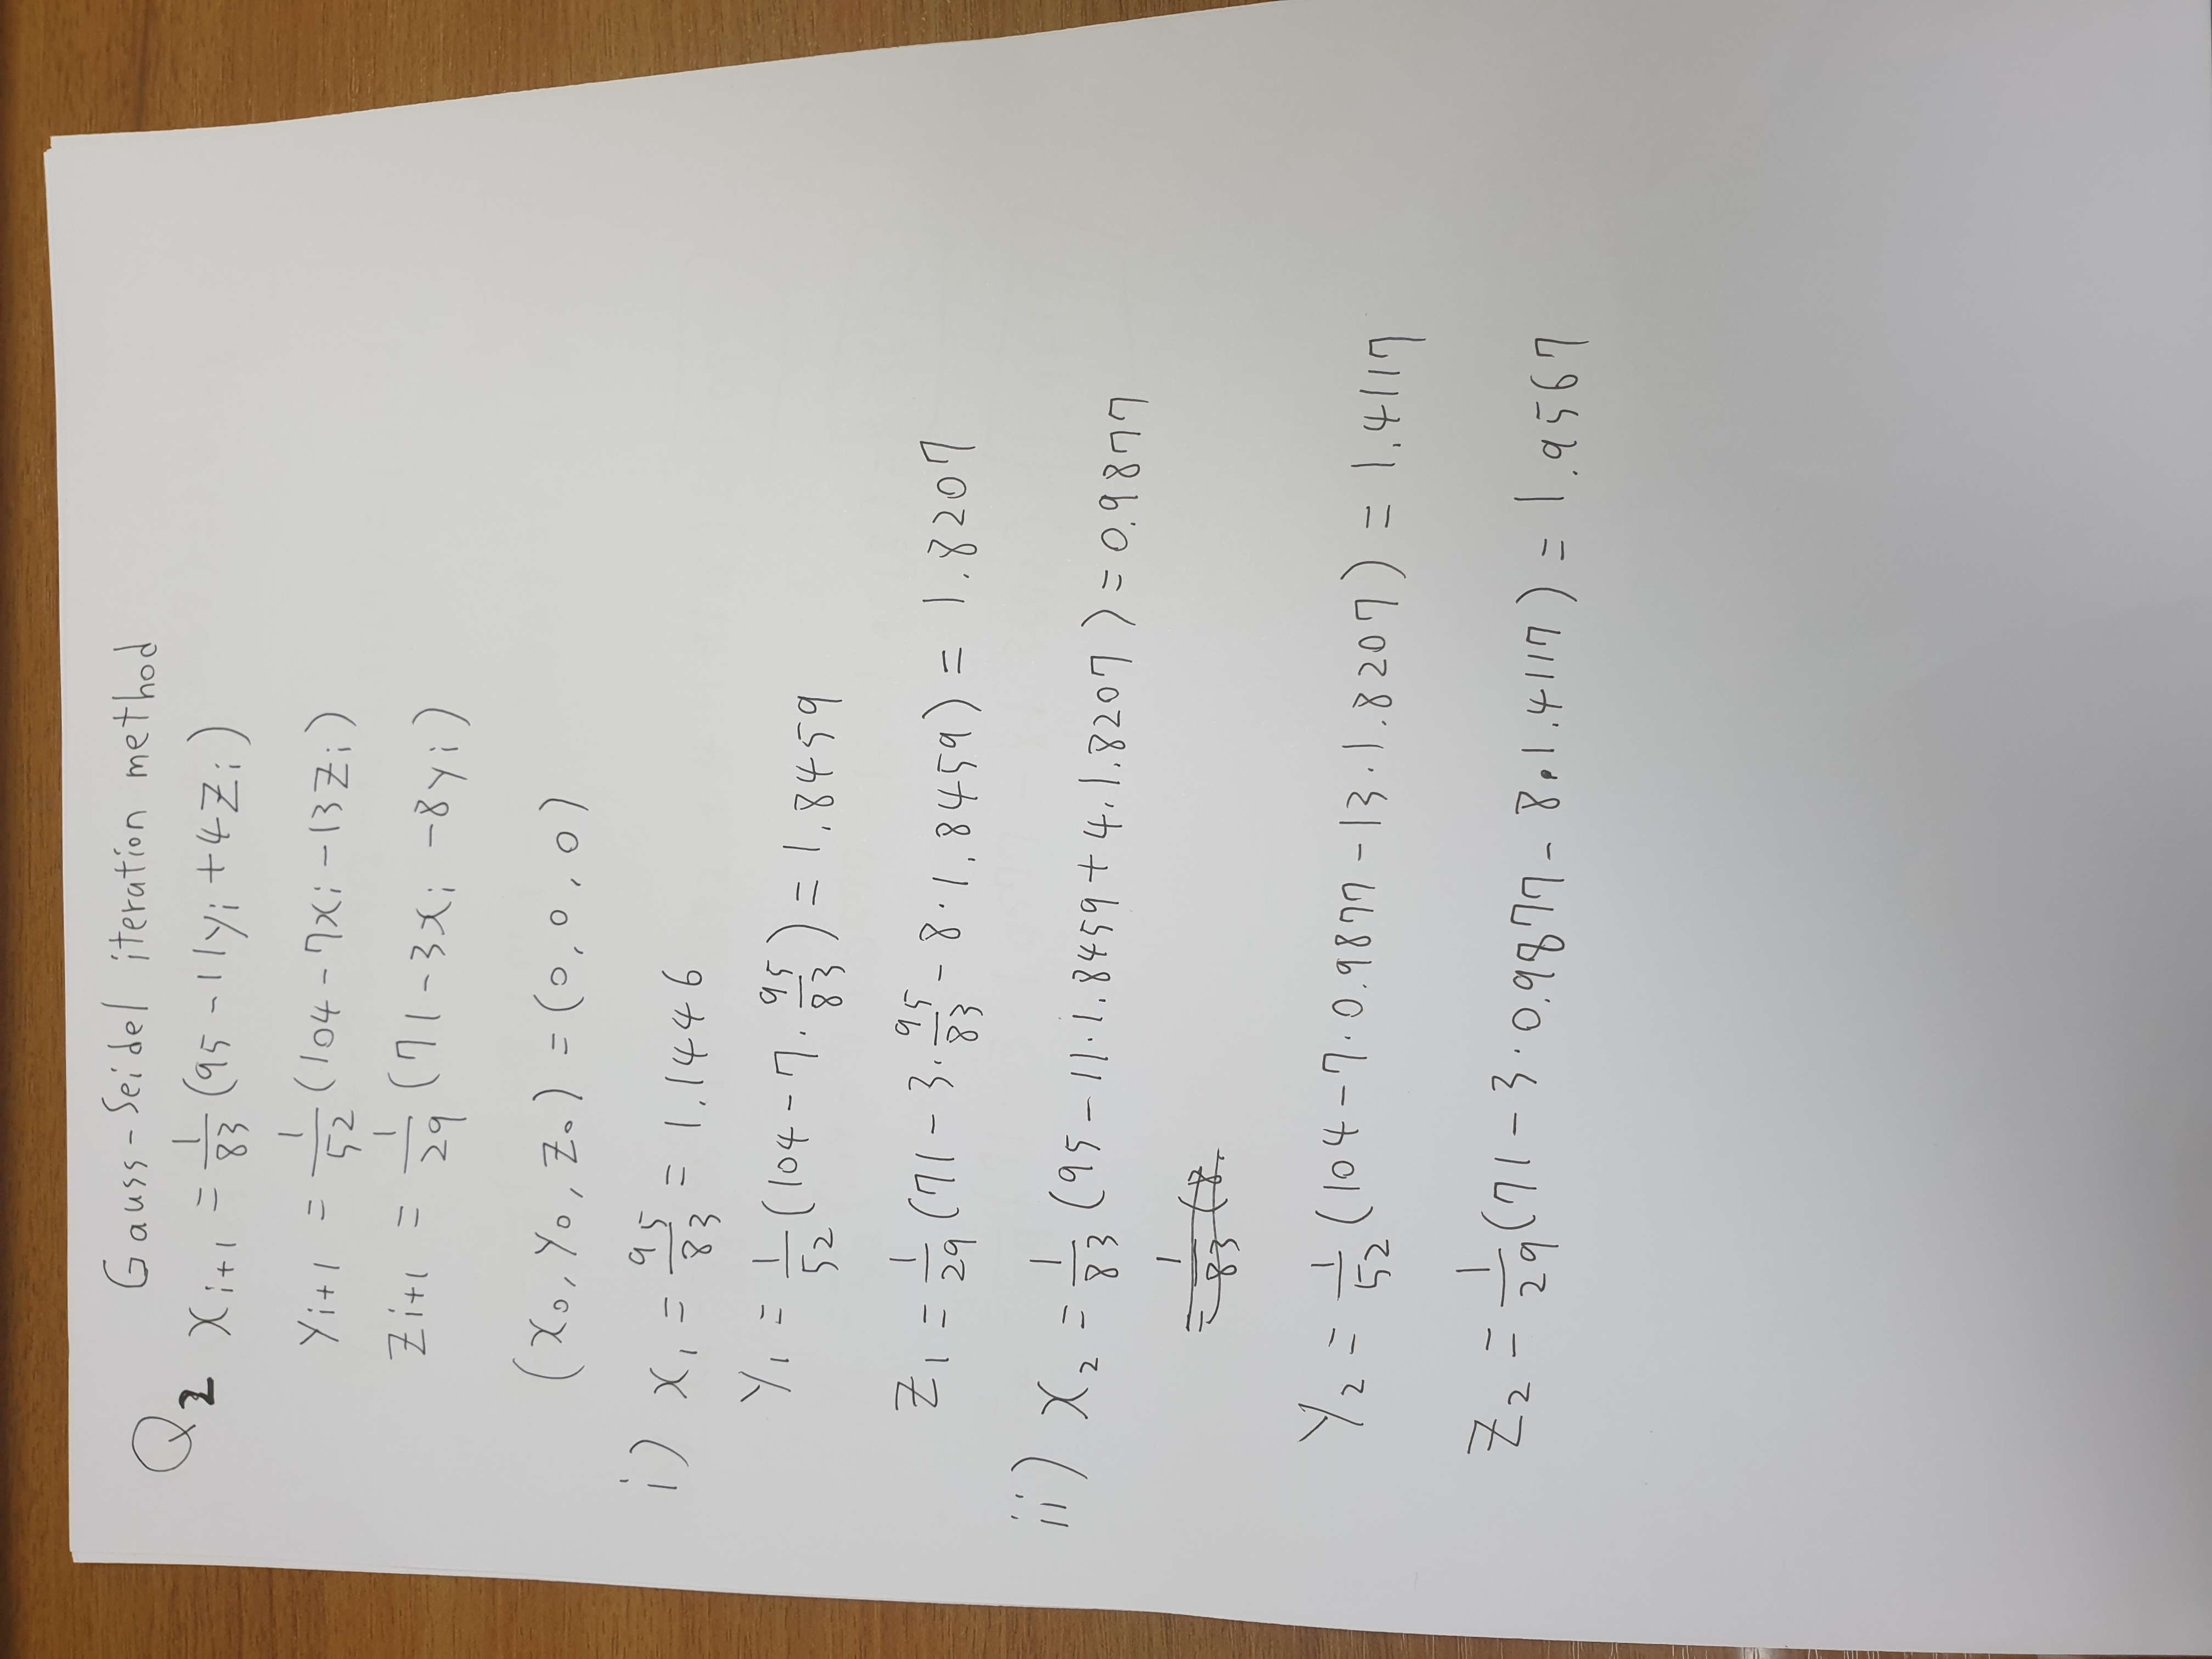 Gauss-Seidel iteration method
Q2 x_{i+1} = \frac{1}{83} (95 - 11y_i + 4z_i)
y_{i+1} = \frac{1}{52} (104 - 7x_i - 13z_i)
z_{i+1} = \frac{1}{29} (71 - 3x_i - 8y_i)
(x_0, y_0, z_0) = (0, 0, 0)
i) x_1 = \frac{95}{83} = 1.1446
y_1 = \frac{1}{52} (104 - 7 · \frac{95}{83}) = 1.8459
z_1 = \frac{1}{29} (71 - 3 · \frac{95}{83} - 8 · 1.8459) = 1.8207
ii) x_2 = \frac{1}{83} (95 - 11 · 1.8459 + 4 · 1.8207) = 0.9877
= \frac{1}{83} (8.
y_2 = \frac{1}{52} (104 - 7 · 0.9877 - 13 · 1.8207) = 1.4117
z_2 = \frac{1}{29} (71 - 3 · 0.9877 - 8 · 1.4117) = 1.9567